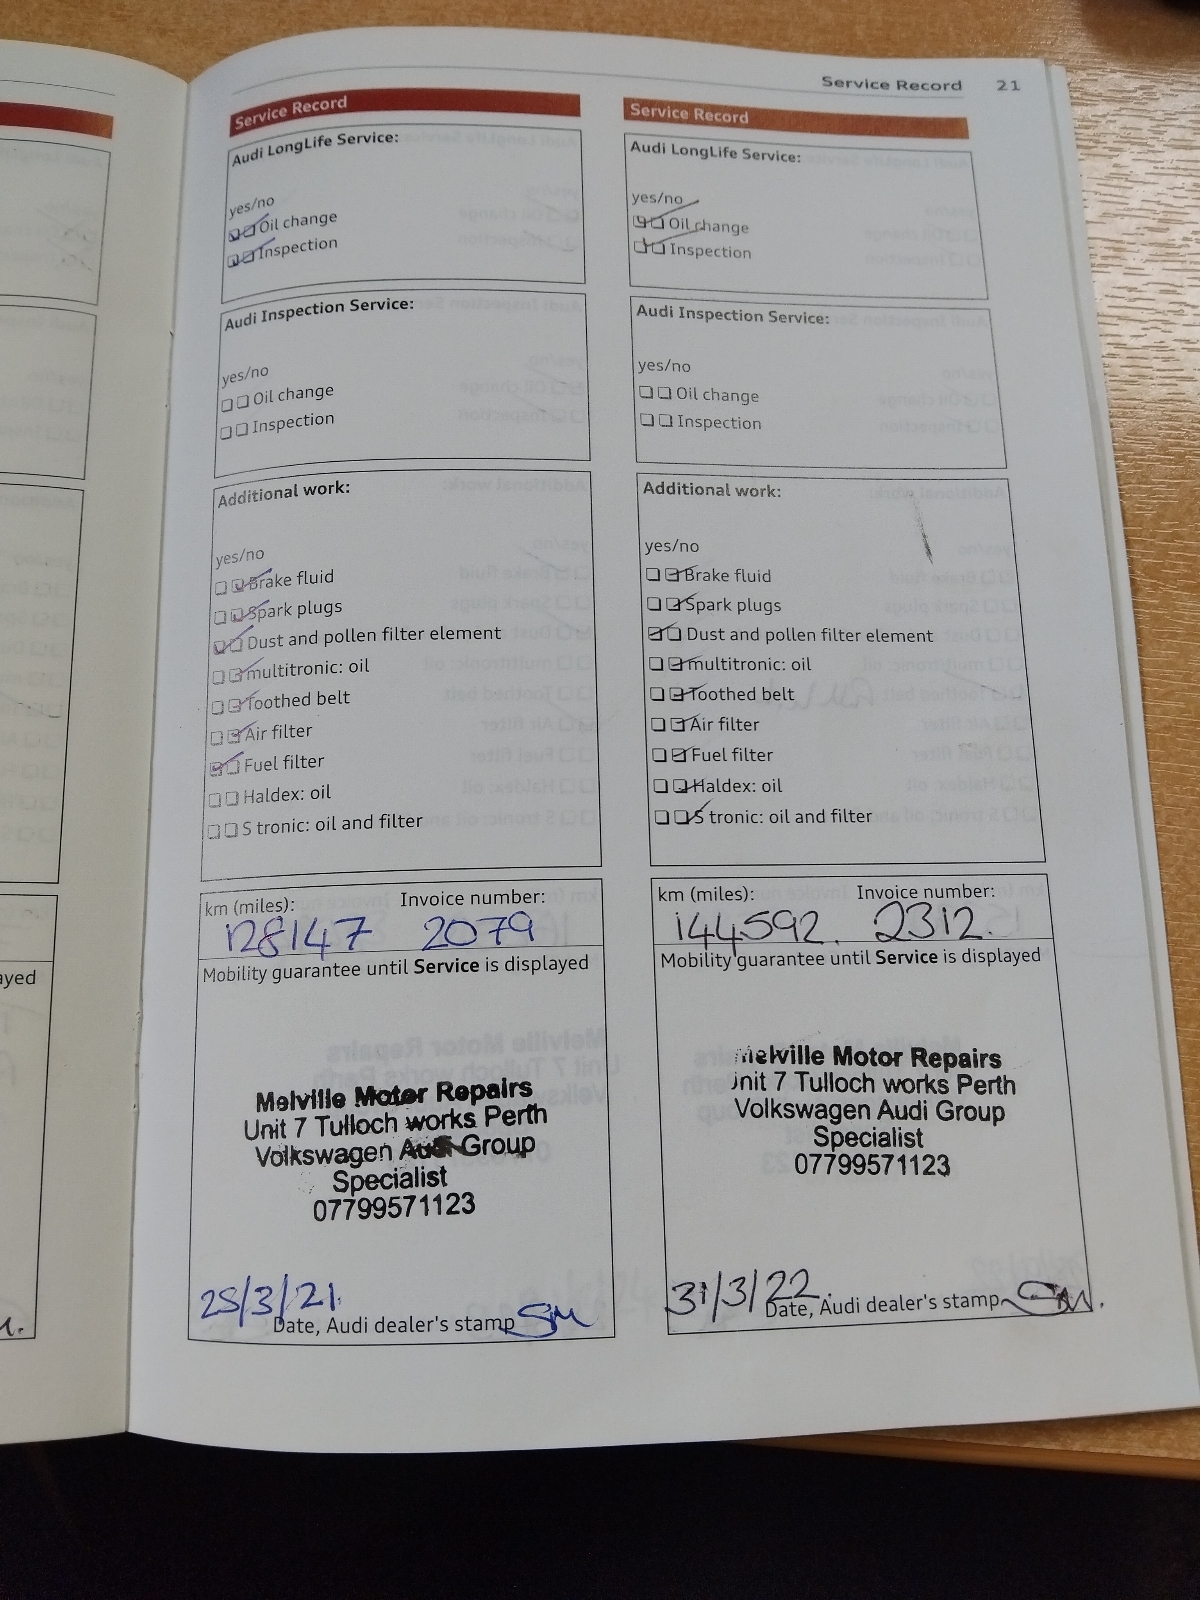 Service Record 21
Service Record
Audi LongLife Service:
yes/no
Oil change
Inspection
Audi Inspection Service:
yes/no
Oil change
Inspection
Additional work:
yes/no
Brake fluid
Spark plugs
Dust and pollen filter element
multitronic: oil
Toothed belt
Air filter
Fuel filter
Haldex: oil
S tronic: oil and filter
km (miles): Invoice number:
128147 2079
Mobility guarantee until Service is displayed
Melville Motor Repairs
Unit 7 Tulloch works Perth
Volkswagen Audi Group
Specialist
07799571123
25/3/21.
Date, Audi dealer's stamp SM
Service Record
Audi LongLife Service:
yes/no
Oil change
Inspection
Audi Inspection Service:
yes/no
Oil change
Inspection
Additional work:
yes/no
Brake fluid
Spark plugs
Dust and pollen filter element
multitronic: oil
Toothed belt
Air filter
Fuel filter
Haldex: oil
S tronic: oil and filter
km (miles): Invoice number:
144592. 2312.
Mobility guarantee until Service is displayed
Melville Motor Repairs
Unit 7 Tulloch works Perth
Volkswagen Audi Group
Specialist
07799571123
31/3/22.
Date, Audi dealer's stamp SM.